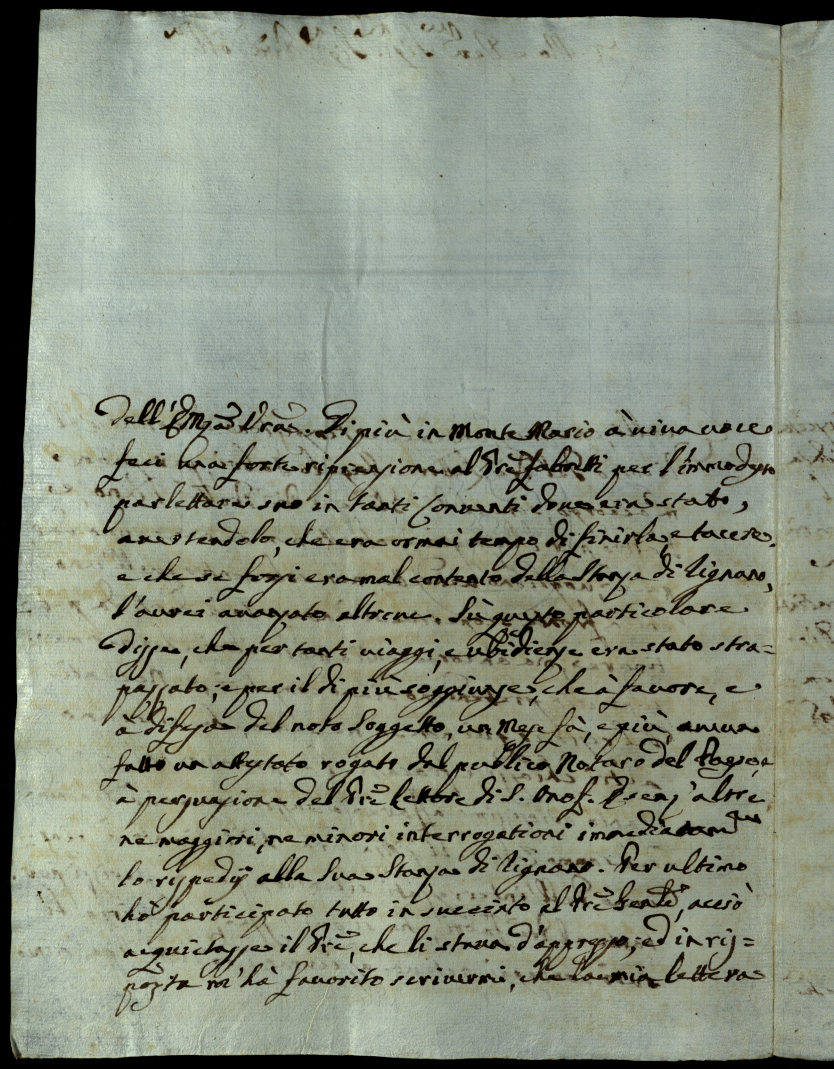 dell'Em̃za Vr̃a. Di più in Monte Mario à viva voce
feci una forte riprensione al Prẽ Fabretti per l'immodesto
parlettare suo in tanti Conventi dove era stato,
avertendolo, che era ormai tempo di finirla, e tacere,
e che se forsi era mal contento della Stanza di Lignano,
l'avrei avanzato altrove. Sù questo particolare
disse, che per tanti viaggi, e ubidienze era stato stra=
passato; e per il di più soggiunse, che à favore, e
à difesa del noto Soggetto, un Mese fà, e più, aveva
fatto un attestato rogato dal publico Notaro del Paese,
à persuasione del Prẽ Lettore di S. Onof. E senz'altre
ne maggiori, ne minori interrogationi immediatamte
lo rispedij alla sua Stanza di Lignano. Per ultimo
hò participato tutto in succinto al Prẽ Genle, acciò
acquietasse il Prẽ, che li stava d'appresso, ed in ris=
posta m'hà favorito scrivermi, che la mia lettera